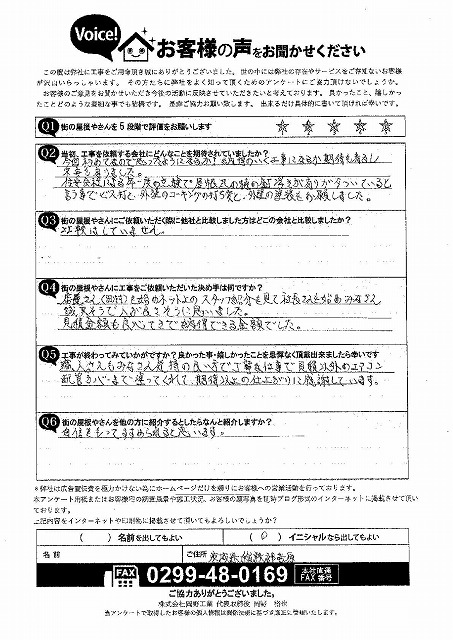 Voice!
お客様の声をお聞かせください
この度は弊社に工事をご用命頂き誠にありがとうございました。世の中には弊社の存在やサービスをご存じないお客様
が沢山いらっしゃいます。その方たちに弊社をよく知って頂くためのアンケートにご協力頂けないでしょうか。
お客様のご意見をお聞かせいただき今後の活動に反映させていただきたいと考えております。良かったこと、嬉しかっ
たことどのような些細な事でも結構です。是非ご協力お願い致します。出来るだけ具体的に書いて頂ければ幸いです。
Q1 街の屋根やさんを5段階で評価をお願いします ☆ ☆ ☆ ☆ ☆
Q2 当初、工事を依頼する会社にどんなことを期待されていましたか?
今回初めてなので思ったようになるか?納得のいく工事になるか期待も有るし
不安も有りました。
Q3 街の屋根やさんにご依頼いただく際に他社と比較しました方はどこの会社と比較しましたか?
比較はしていません。
Q4 街の屋根やさんに工事をご依頼いただいた決め手は何ですか?
店長さん(田村)を始めネット上のスタッフ紹介も見て社長さんを始めみなさん
誠実そうで人が良さそうに思いました。
見積金額も良心てきで納得できる金額でした。
Q5 工事が終わってみていかがですか?良かった事・嬉しかったことを忌憚なく頂戴出来ましたら幸いです
職人さんもみなさん気持の良い方で丁寧な仕事で見積以外のエアコン
配管カバーまで塗ってくれて、期待以上の仕上がりに感謝しています。
Q6 街の屋根やさんを他の方に紹介するとしたらなんと紹介しますか?
自信をもってすすめられると思います。
※弊社は広告宣伝費を極力かけない為にホームページだけを頼りにお客様への営業活動を行っております。
本アンケート用紙またはお客様宅の調査風景や施工状況、お客様の顔写真を現場ブログ形式のインターネットに掲載させて頂い
ております。
上記内容をインターネットや印刷物に掲載させて頂いてもよろしいでしょうか?
( )名前を出してもよい ( ○ )イニシャルなら出してもよい
名前 ご住所
FAX 0299-48-0169 本社直通 FAX番号
ご協力ありがとうございました。
株式会社岡野工業 代表取締役 岡野
当アンケートで取得したお客様の個人情報は関係法規に基づき適正に管理いたします。